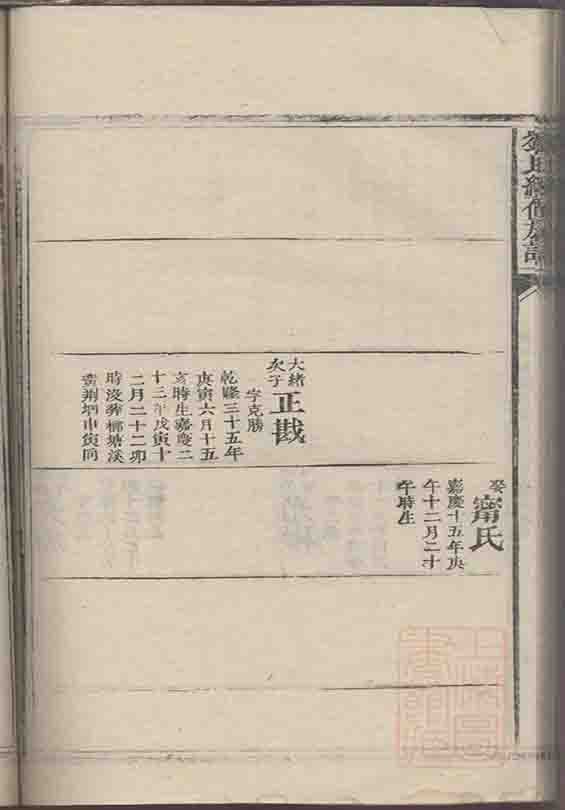 氏續修族譜
大緒
次子
正戡
字克勝
乾隆三十五年
庚寅六月十五
亥時生嘉慶二
十三年戊寅十
二月二十二卯
時沒葬楊塘溪
黃荆垇申貟同
娶
甯氏
嘉慶十五年庚
午十二月二十
午時生